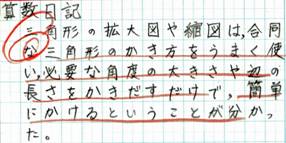 算数日記
三角形の拡大図や縮図は,合同
な三角形のかき方をうまく使
い,必要な角度の大きさや辺の
長さをかきだすだけで,簡単
にかけるということが分かっ
た。